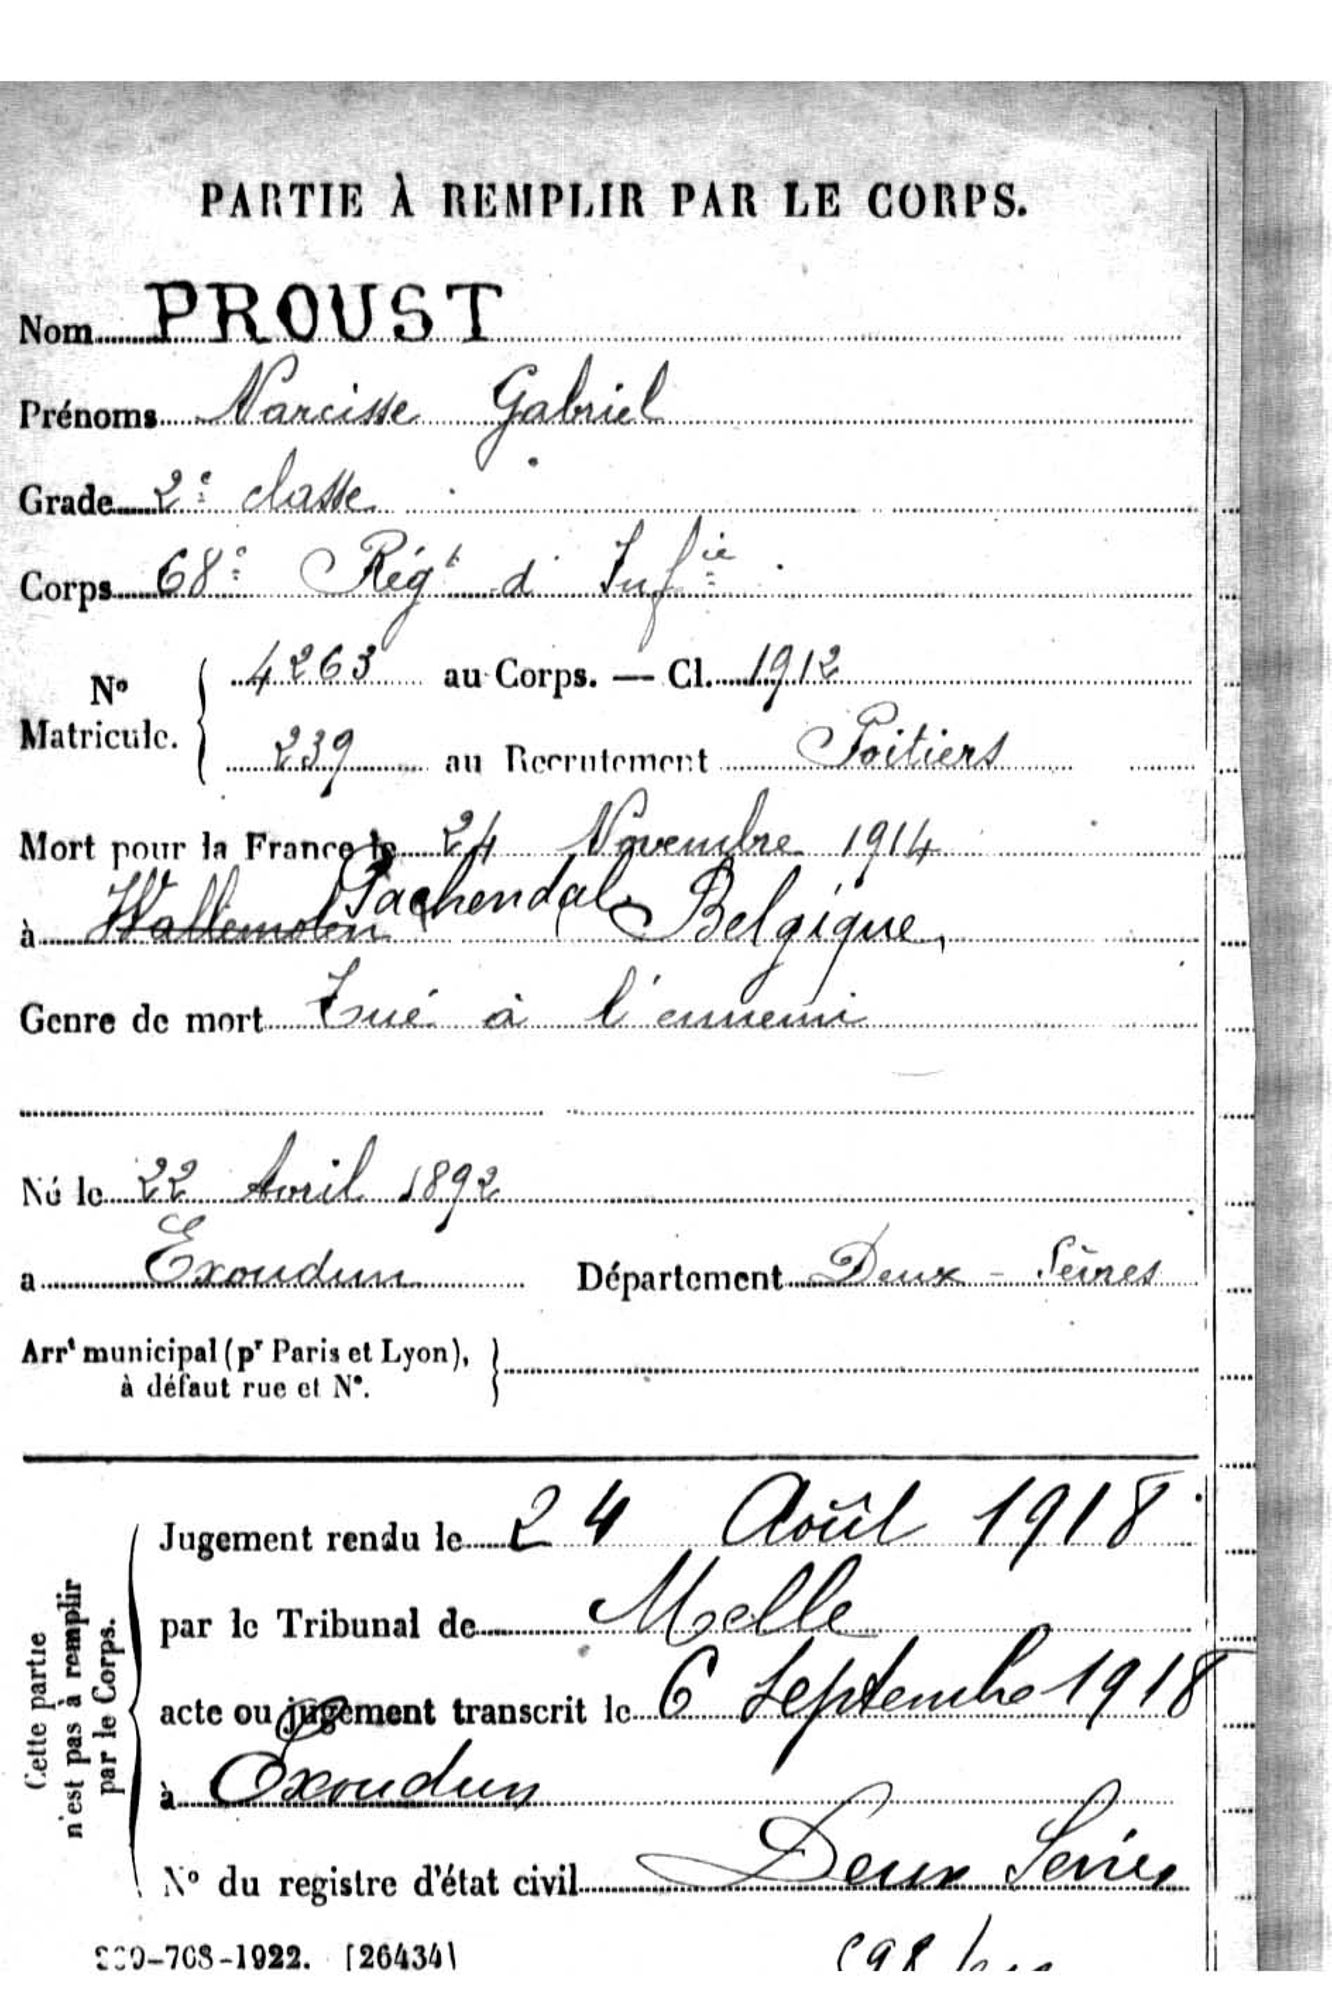 PARTIE À REMPLIR PAR LE CORPS.
Nom PROUST
Prénoms Narcisse Gabriel
Grade 2e classe
Corps 68e Régt d'Infie
No Matricule. { 4263 au Corps. — Cl. 1912
239 au Recrutement Poitiers
Mort pour la France le 24 Novembre 1914
à Wallemolen Pachendal Belgique,
Genre de mort Tué à l'ennemi
Né le 22 Avril 1892
a Exoudun Département Deux-Sèvres
Arrt municipal (pr Paris et Lyon), }
à défaut rue et No.
Cette partie
n'est pas à remplir
par le Corps.
Jugement rendu le 24 Août 1918
par le Tribunal de Melle
acte ou jugement transcrit le 6 Septembre 1918
à Exoudun
No du registre d'état civil Deux Sèvres
708-1922. [26434]